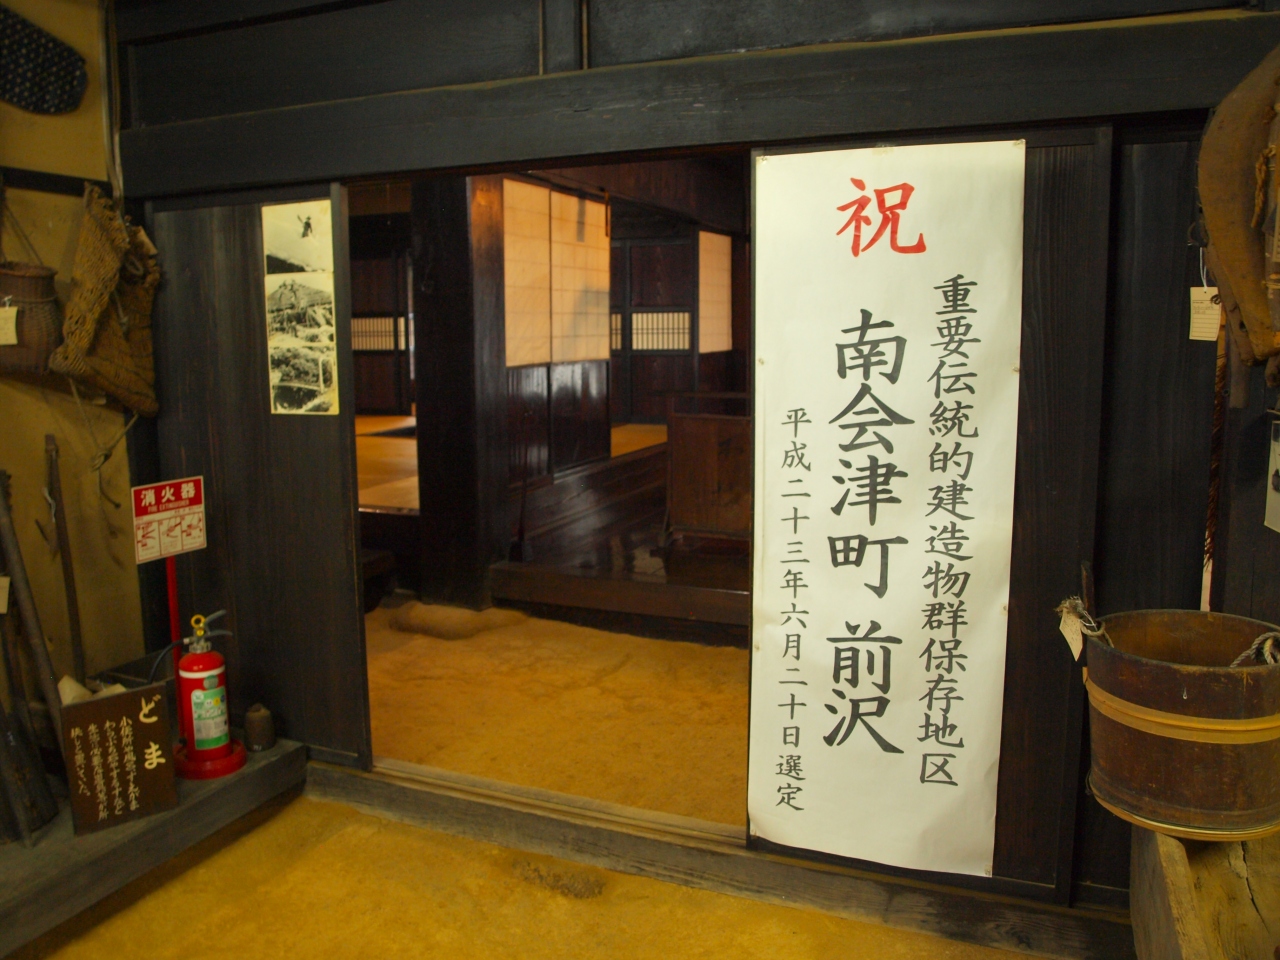 祝
重要伝統的建造物群保存地区
南会津町 前沢
平成二十三年六月二十日選定
消火器
FIRE EXTINGUISHER
どま